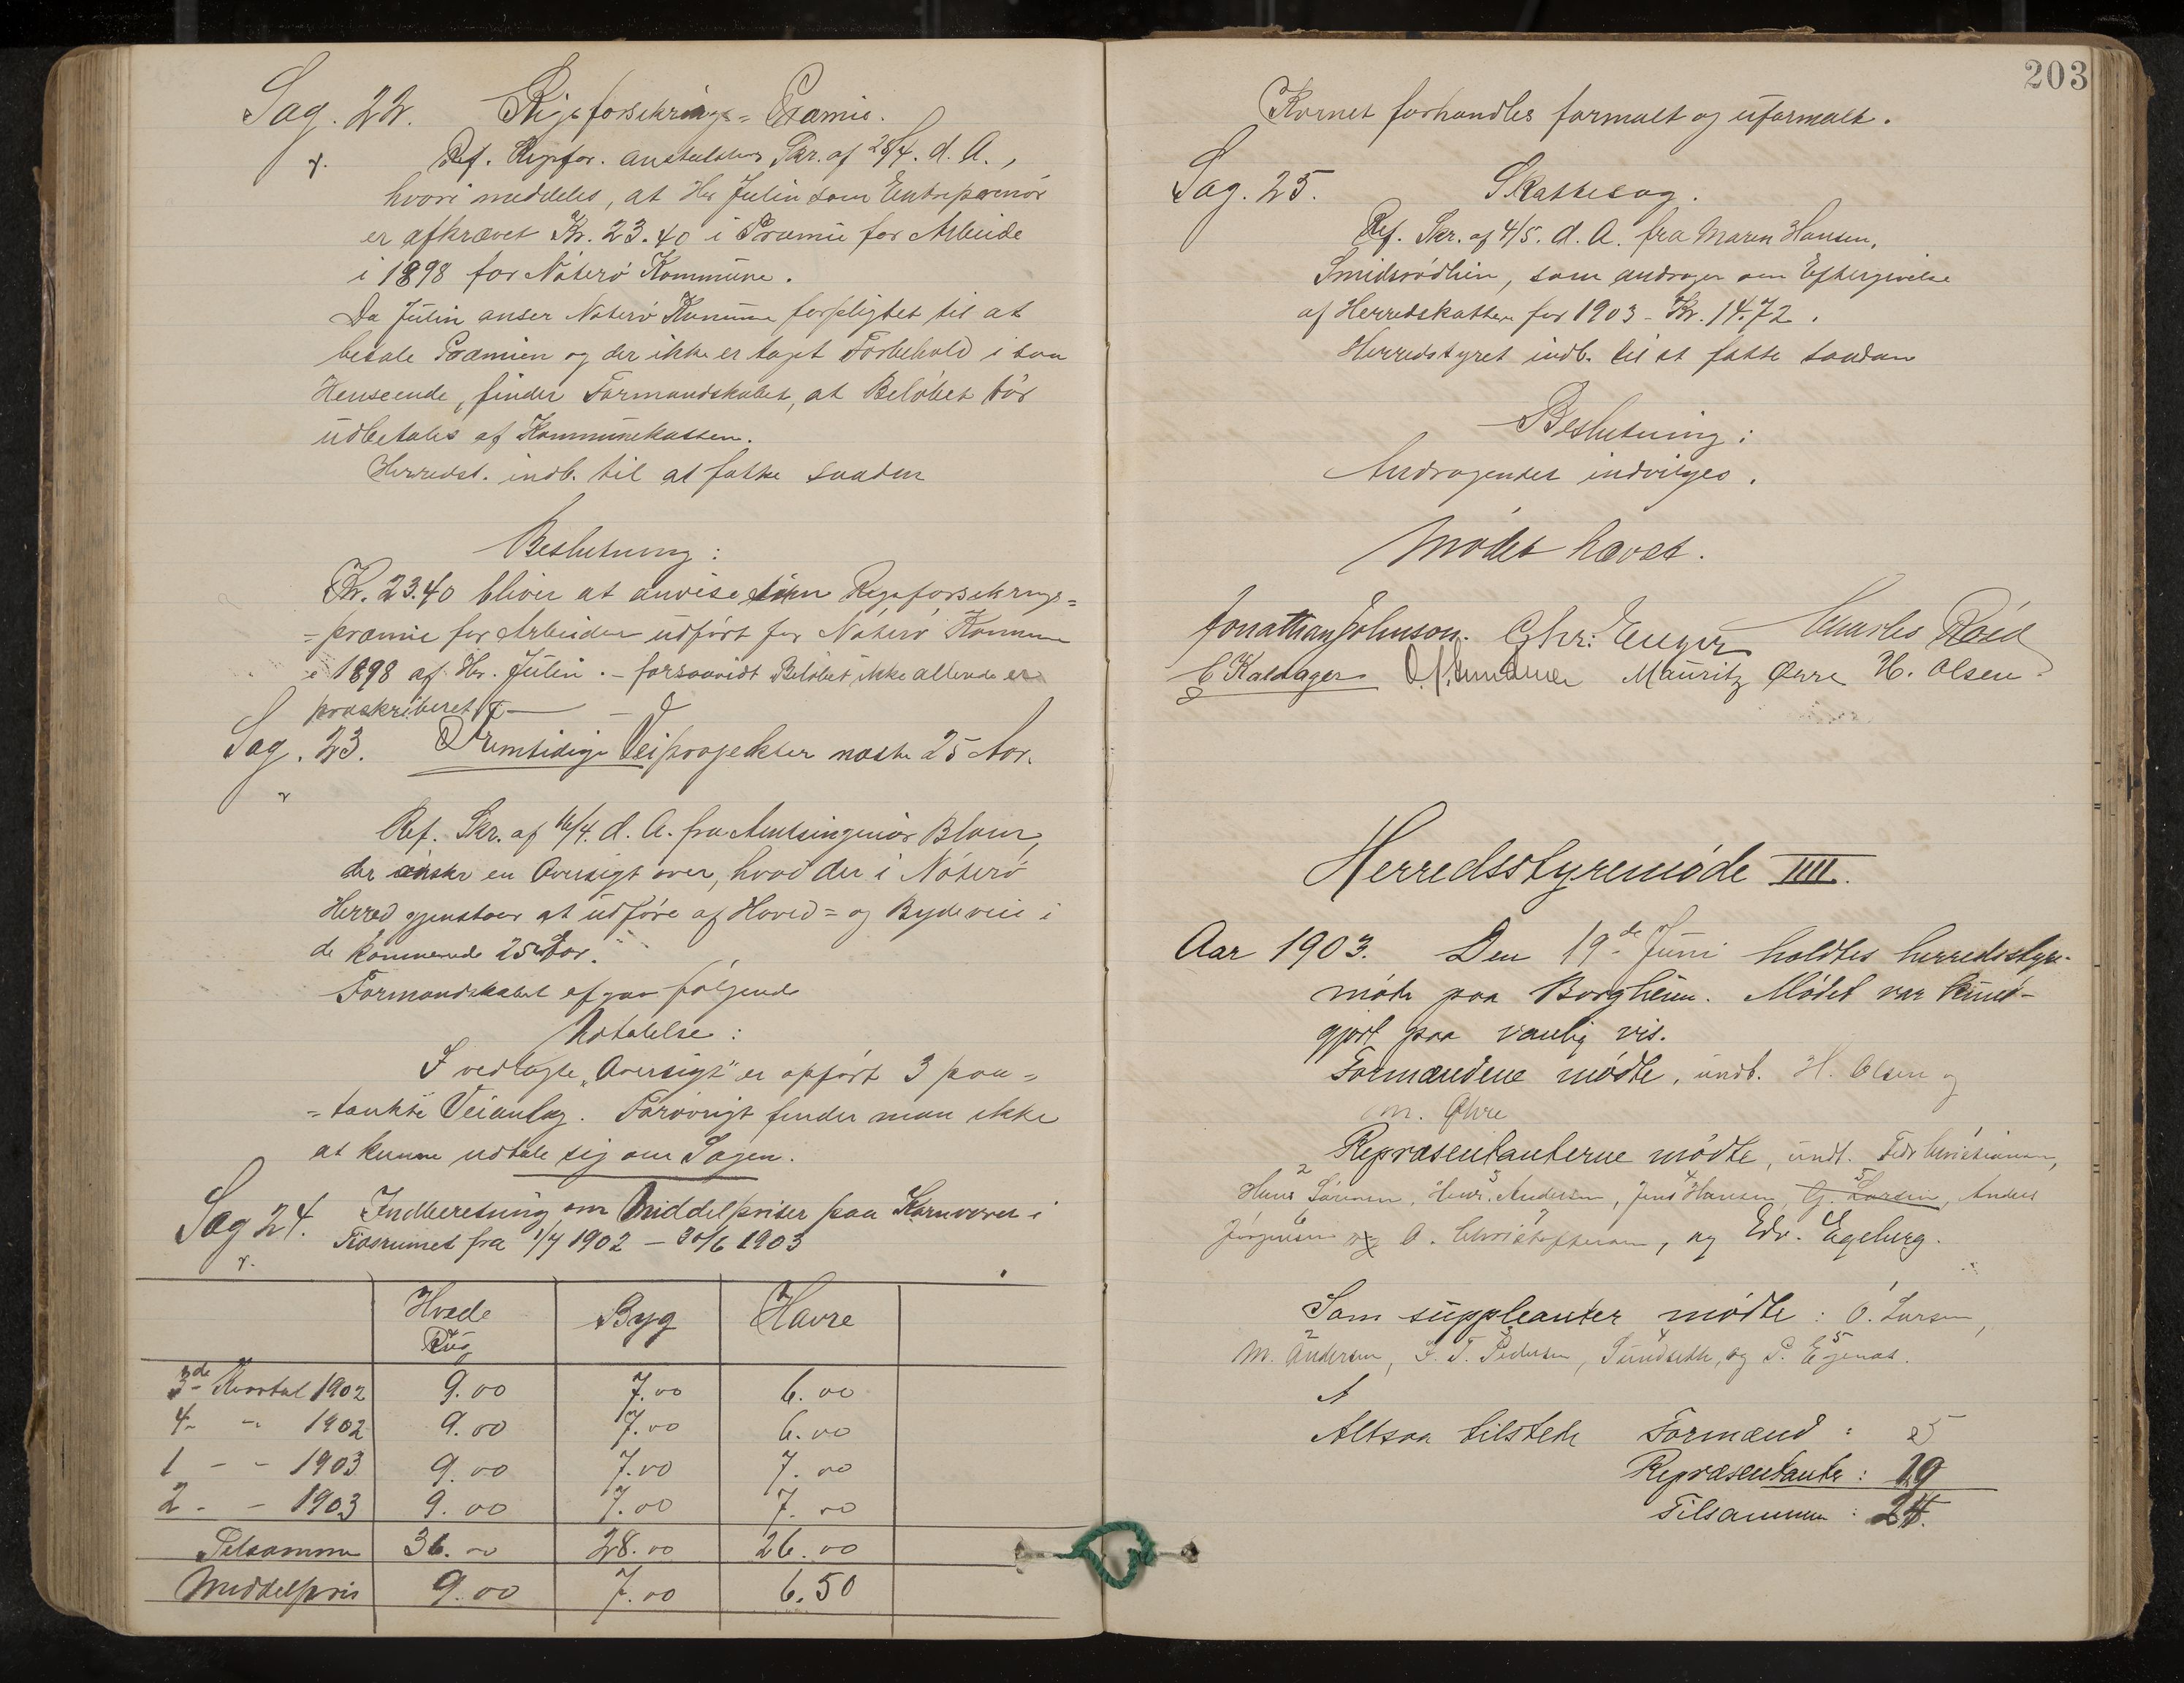 Sag. 22. Rigsforsikrings= Præmie.
Ref. Rigsfor. anstaltens Skr. af 28/4. d. A.,
hvori meddeles, at Hr Julin som Entreprenør
er afkrævet Kr. 23.40 i Præmie for Arbeide
i 1898 for Nøterø Kommune.
Da Julin anser Nøterø Kommune forpligtet til at
betale Præmien og der ikke er taget Forbehold i saa
Henseende, finder Formandskabet, at Beløbet bør
udbetales af Kommunekassen.
Herredst. indb. til at fatte saadan
Beslutning:
Kr. 23.40 bliver at anvise som Rigsforsikrings=
=præmie for Arbeider udført for Nøterø Kommune
i 1898 af Hr. Julin. - forsaavidt Beløbet ikke allerede er
præskriberet.
Sag. 23. Fremtidige Veiprojekter næste 25 Aar.
Ref. Skr. af 16/4. d. A. fra Amtsingeniør Blom,
der ønsker en Oversigt over, hvad der i Nøterø
Herred gjenstaar at udføre af Hoved= og Bydeveie i
de kommende 25 Aar.
Formandskabet afgav følgende
Udtalelse:
I vedlagte "Oversigt" er opført 3 paa=
=tænkte Veianlæg. Forøvrigt finder man ikke
at kunne udtale sig om Sagen.
Sag 24. Indberetning om Middelpriser paa Kornvarer i
Tidsrummet fra 1/7 1902 - 30/6 1903
Hvede Byg Havre
Rug
3de Kvartal 1902 9.00 7.00 6.00
4 - - 1902 9.00 7.00 6.00
1 - - 1903 9.00 7.00 7.00
2 - - 1903 9.00 7.00 7.00
Tilsammen 36.00 28.00 26.00
Middelpris 9.00 7.00 6.50
203
Kornet forhandles formalt og uformalt.
Sag. 25. Skattesag.
Ref. Skr. af 4/5. d. A. fra Maren Hansen,
Smidsrødhein, som andrager om Eftergivelse
af Herredskatten for 1903 - Kr. 14.72.
Herredstyret indb. til at fatte saadan
Beslutning:
Andragendet indvilges.
Mødet hævet.
Jonathan Johnson. Chr: Enger Charles Røed
C Kaldager Mauritz Øhre H. Olsen
Herredsstyremøde IIII.
Aar 1903. Den 19de Juni holdtes herredsstyre-
møde paa Borgheim. Mødet var kund-
gjort paa vanlig vis.
Formændene mødte, undt. H. Olsen og
M. Øhre
Repræsentanterne mødte, undt. Fedr Christiansen,
Hans Sørensen, Henr. Andersen, Jens Hansen, G. Larsen, Anders
Jørgensen og A. Christophersen, og Edv. Egeberg.
Som suppleanter mødte: O. Larsen,
M. Andersen, F. T. Pedersen, Sundseth, og P. Egenæs.
A
Altsaa tilstede Formænd: 5
Repræsentanter: 19
Tilsammen: 24.